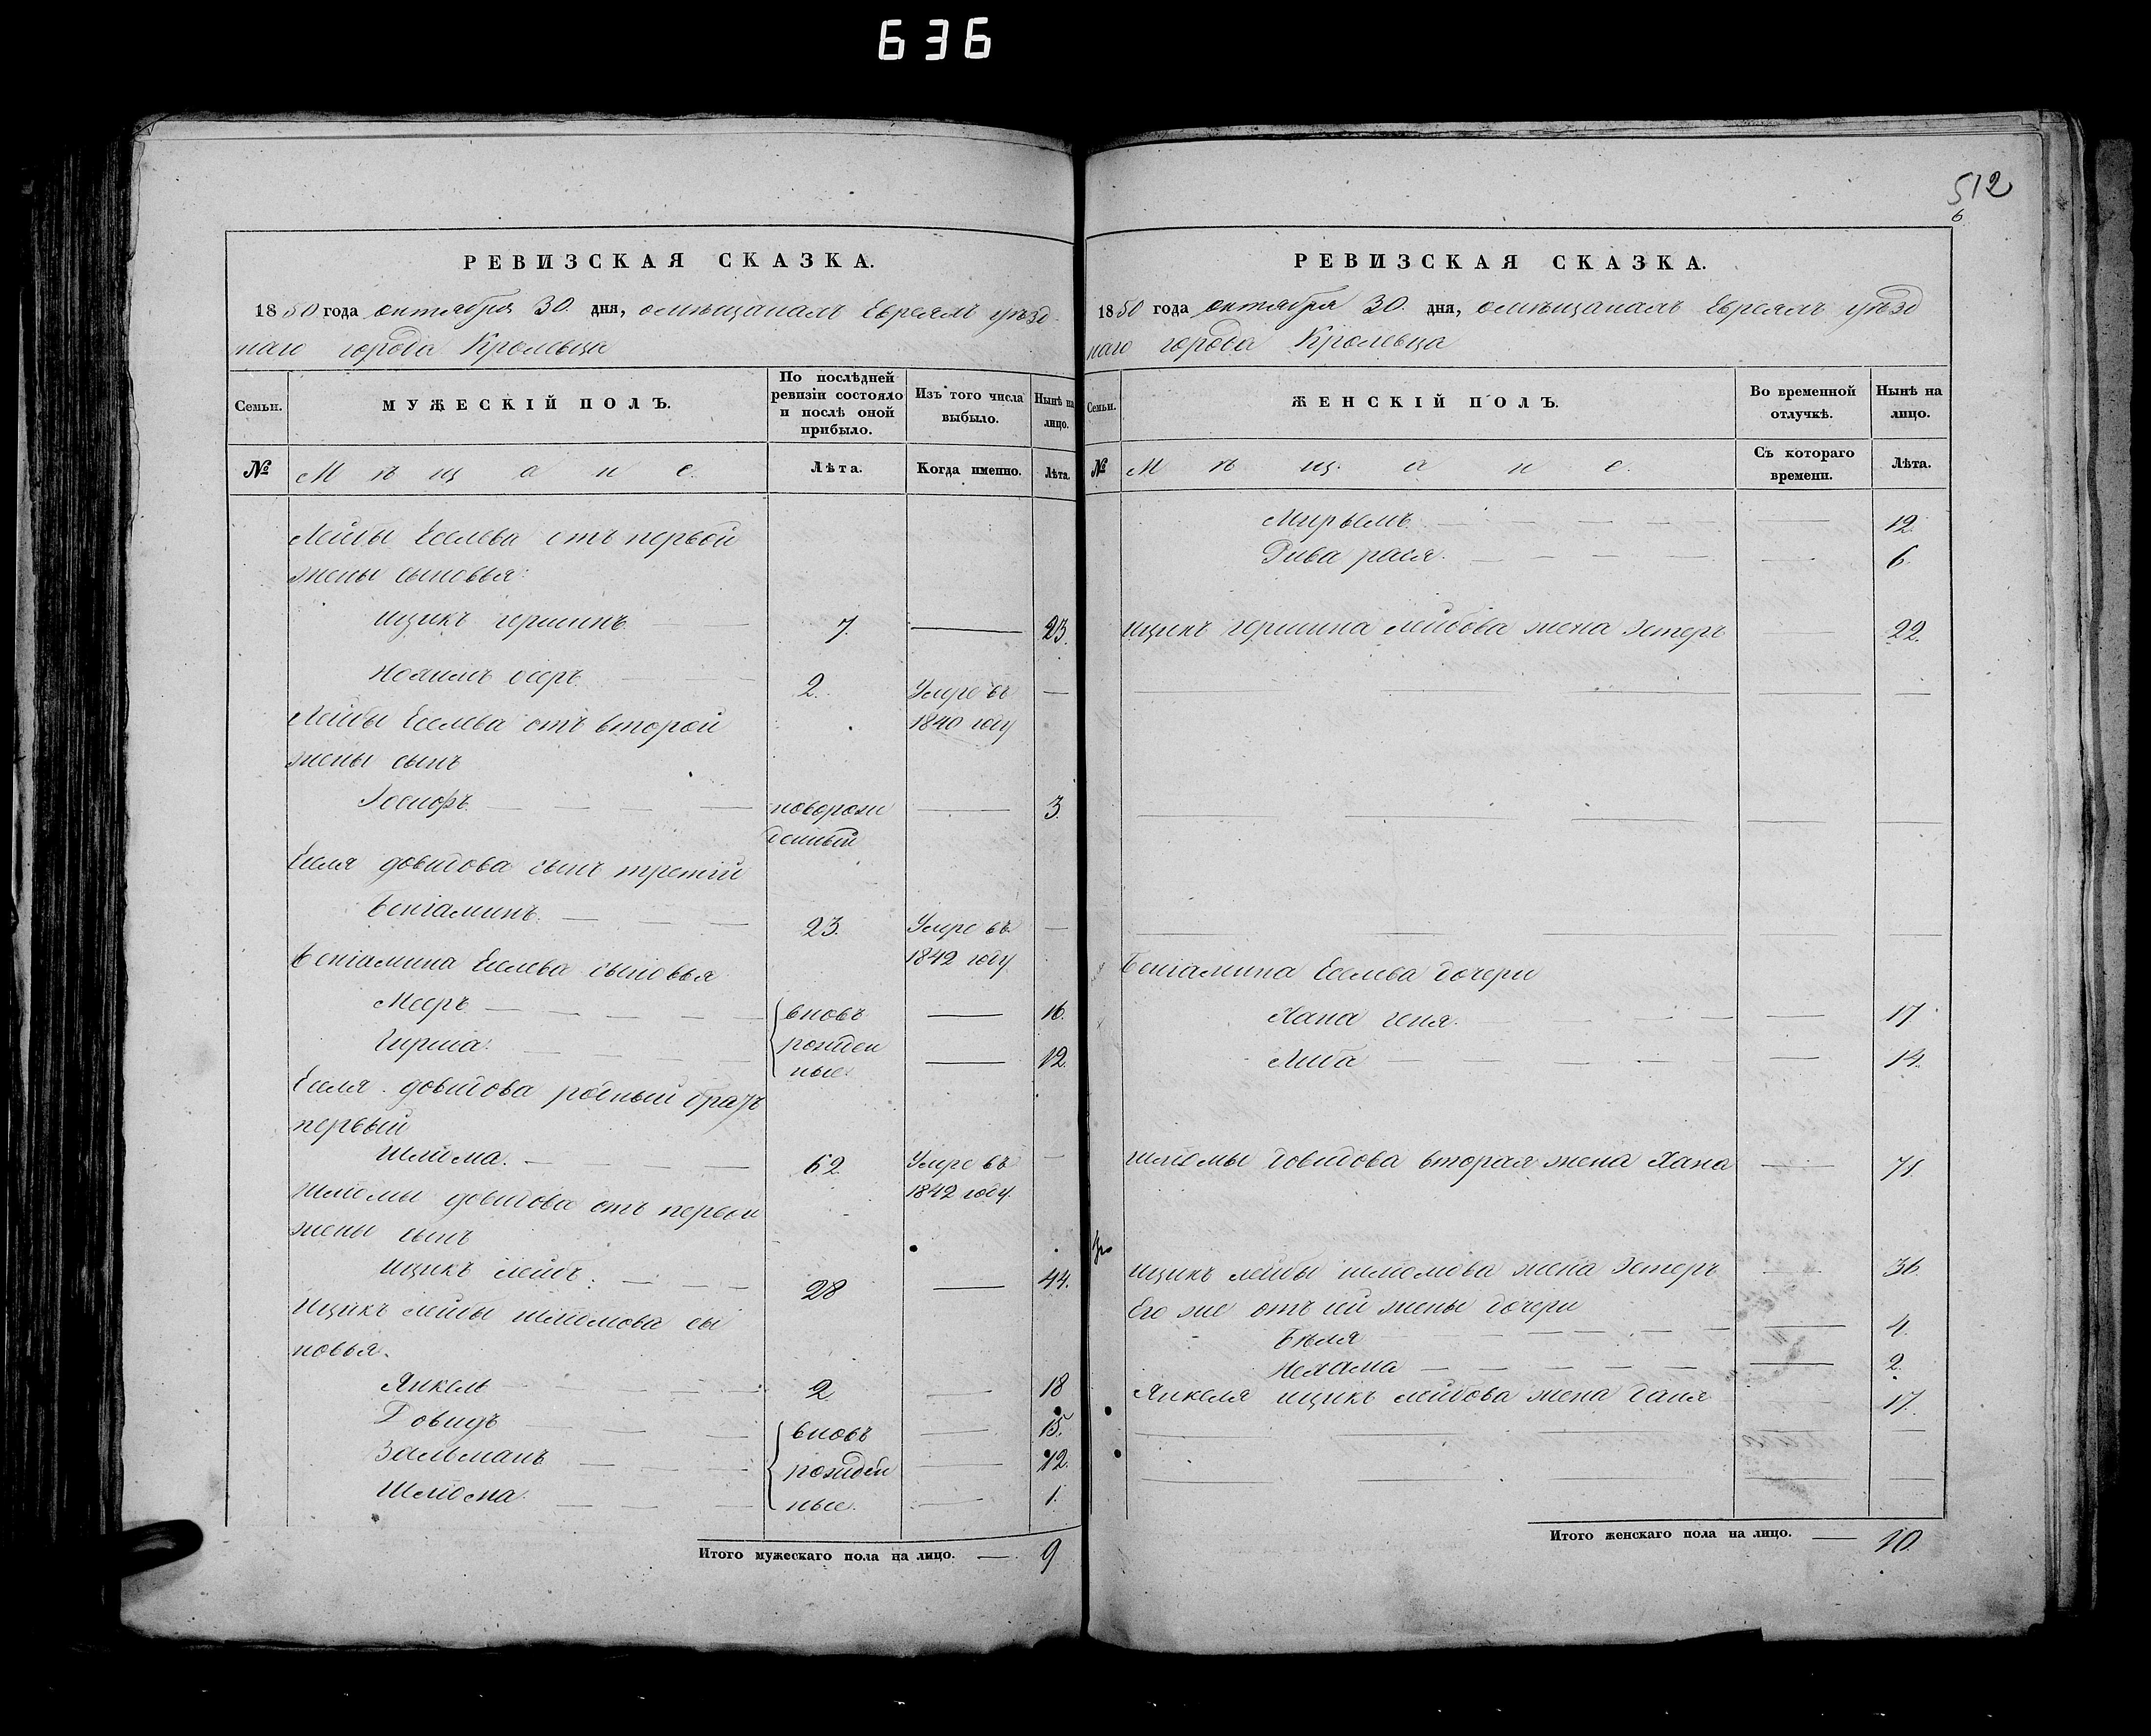 636
512
6
РЕВИЗСКАЯ СКАЗКА.
1850 года октября 30. дня, омѣщанахъ Евреяхъ уѣзд
наго города Кролевца
Семьи.
МУЖЕСКІЙ ПОЛЪ.
По послѣдней
ревизіи состояло
и послѣ оной
прибыло.
Изъ того числа
выбыло.
Нынѣ на
лицо.
№
Мѣщане.
Лѣта.
Когда именно.
Лѣта.
Лейбы Еселева отъ первой
жены сыновья:
Ицикъ гершинъ 7. 23.
осеръ 2. Умре въ
Лейбы Еселева отъ второй 1840 году
жены сынъ
Іосифъ новорож 3.
денный
Еселя довидова сынъ третій
Беніаминъ. 23. Умре въ
Беніамина Еселева сыновья 1842 году
Мееръ вновь 16.
Гирша. рожден 12.
ные.
Еселя довидова родный братъ
первый
Шлиома. 62 Умре въ
Шлиомы довидова отъ первой 1842 году.
жены сынъ
Ицикъ лейбъ. 28 44.
Ицикъ лейбы шлиомова сы
новья.
Янкель 2. 18
Довидъ вновь 15.
Зальманъ рожден 12.
Шлиома. ные. 1.
Итого мужескаго пола на лицо. 9
РЕВИЗСКАЯ СКАЗКА.
1850 года октября 30. дня, омѣщанахъ Евреяхъ уѣзд
наго города Кролевца
Семьи.
ЖЕНСКІЙ ПОЛЪ.
Во временной
отлучкѣ.
Нынѣ на
лицо.
№
Мѣщане.
Съ котораго
времени.
Лѣта.
Мирьемъ 12.
Рива рася. 6.
Ицикъ гершина лейбова жена Эстеръ 22.
Беніамина Еселева дочери
Хана геня. 17
Либа 14.
Шлиомы довидова вторая жена Хана 71.
Ицикъ лейбы шлиомова жена Эстеръ 36.
Его же отъ сей жены дочери
Бѣля 4.
Нехама 2.
Янкеля ицикъ лейбова жена баня 17.
Итого женскаго пола на лицо. 10.